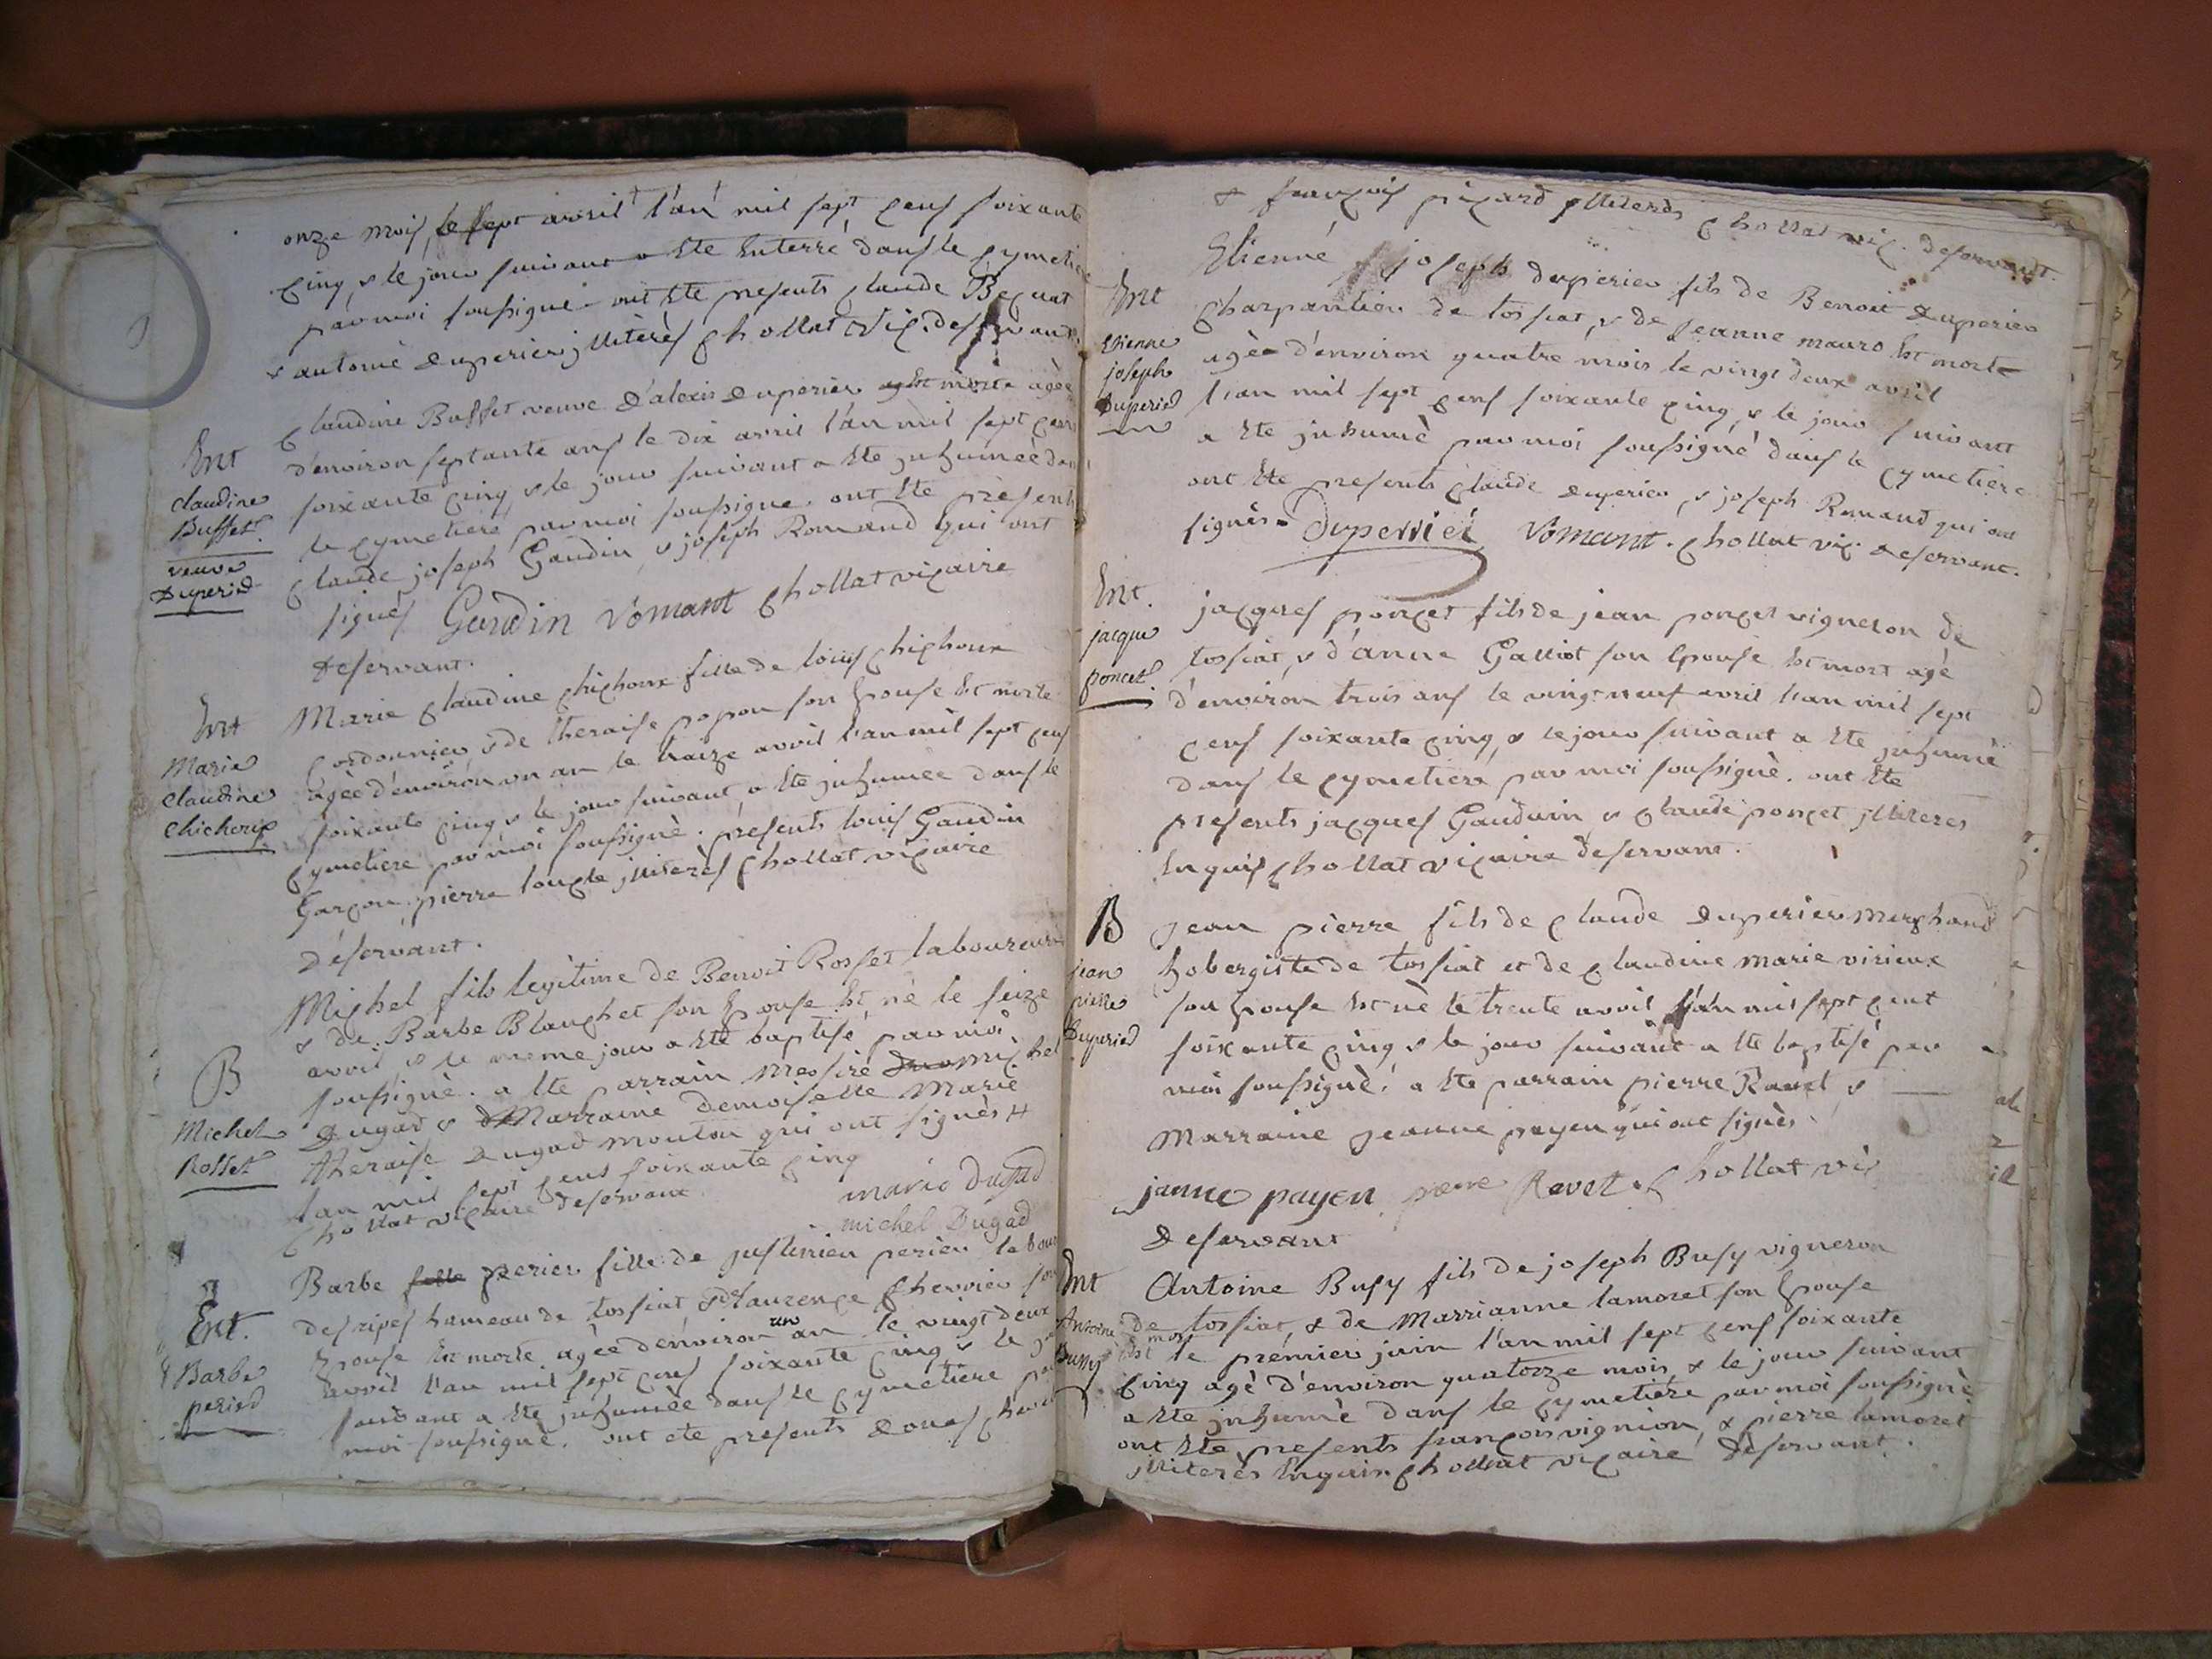 onze mois, le sept avril l'an mil sept cens soixante
cinq, & le jour suivant a ete enterré dans le cymetiere
par moi soussigné ont ete presents claude Bequat
& antoine duperier illiterés chollat vic. deservant
Ent
claudine
Buffet
veuve
Duperier
claudine Buffet veuve d'alexis duperier est morte agée
d'environ septante ans le dix avril l'an mil sept cens
soixante cinq & le jour suivant a ete inhumée dans
le cymetiere par moi soussigné. ont ete presents
claude joseph Gaudin & joseph Romand qui ont
signés Gardin Vomant chollat vicaire
deservant.
Ent
Marie
claudine
chichoux
Marie claudine chichoux fille de louis chichoux
cordonnier & de theraise popon son Epouse est morte
agée d'environ un an le traize avril l'an mil sept cens
soixante cinq & le jour suivant a ete inhumée dans le
cymetiere par moi soussigné. presents louis Gaudin
Garçon, pierre illiterés chollat vicaire
deservant.
B
Michel
Rosset
Michel fils legitime de Benoit Rosset laboureur
& de Barbe Blanchet son Epouse est né le seize
avril, & le meme jour a ete baptisé par moi
soussigné. a ete parrain Messire Michel
Dugad & Marraine demoiselle Marie
theraise dugad mouton qui ont signés
l'an mil sept cens soixante cinq
chollat vicaire deservant
marie dugad
michel Dugad
Ent.
Barbe
perier
Barbe fille perier fille de justinien perier labour
des ripes hameau de tossiat & laurence chevrier son
Epouse est morte agée d'environ un an le vingt deux
avril l'an mil sept cens soixante cinq & le jour
suivant a ete inhumée dans le cymetiere par
moi soussigné. ont ete presents
& françois picard illiterés chollat vic. deservant.
Ent
Etienne
joseph
Duperier
Etienne joseph duperier fils de Benoit duperier
charpantier de tossiat, & de jeanne mauro est morte
agée d'environ quatre mois le vingt deux avril
l'an mil sept cens soixante cinq & le jour suivant
a ete inhumé par moi soussigné dans le cymetiere
ont ete presents claude duperier, & joseph Romand qui ont
signés. Duperriei Vomant. chollat vic. deservant.
Ent.
jacque
poncet
jacques poncet fils de jean poncet vigneron de
tossiat, & d'anne Galliot son Epouse est mort agé
d'environ trois ans le vingt neuf avril l'an mil sept
cens soixante cinq, & le jour suivant a ete inhumé
dans le cymetiere par moi soussigné. ont ete
presents jacques Gauduin & claude poncet illiteres
Enquis chollat vicaire deservant.
B
jean
pierre
Duperier
jean pierre fils de claude duperier marchand
hobergiste de tossiat et de claudine marie virieux
son Epouse est né le trente avril l'an mil sept cent
soixante cinq & le jour suivant a ete baptisé par
moi soussigné. a ete parrain pierre Ravet &
Marraine jeanne payen qui ont signés
janne payen pierre Ravet chollat vic
deservant
Ent
Antoine
Bussy
Antoine Busy fils de joseph Busy vigneron
de tossiat, & de Marrianne lamoret son Epouse
est mort le premier juin l'an mil sept cens soixante
cinq agé d'environ quatorze mois, & le jour suivant
a ete inhumé dans le cymetiere par moi soussigné
ont ete presents françois vignion, & pierre lamoret
illiterés Enquis chollat vicaire deservant.